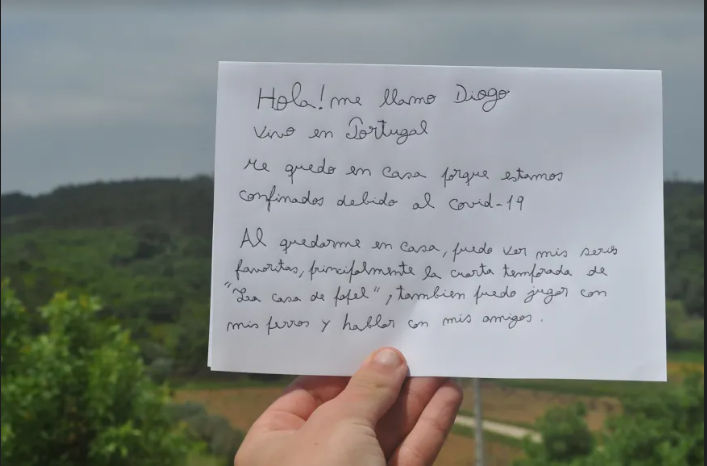 Hola! me llamo Diogo
Vivo en Portugal
Me quedo en casa porque estamos
confinados debido al covid-19
Al quedarme en casa, puedo ver mis series
favoritas, principalmente la cuarta temporada de
"La casa de papel", tambien puedo jugar con
mis perros y hablar con mis amigos.